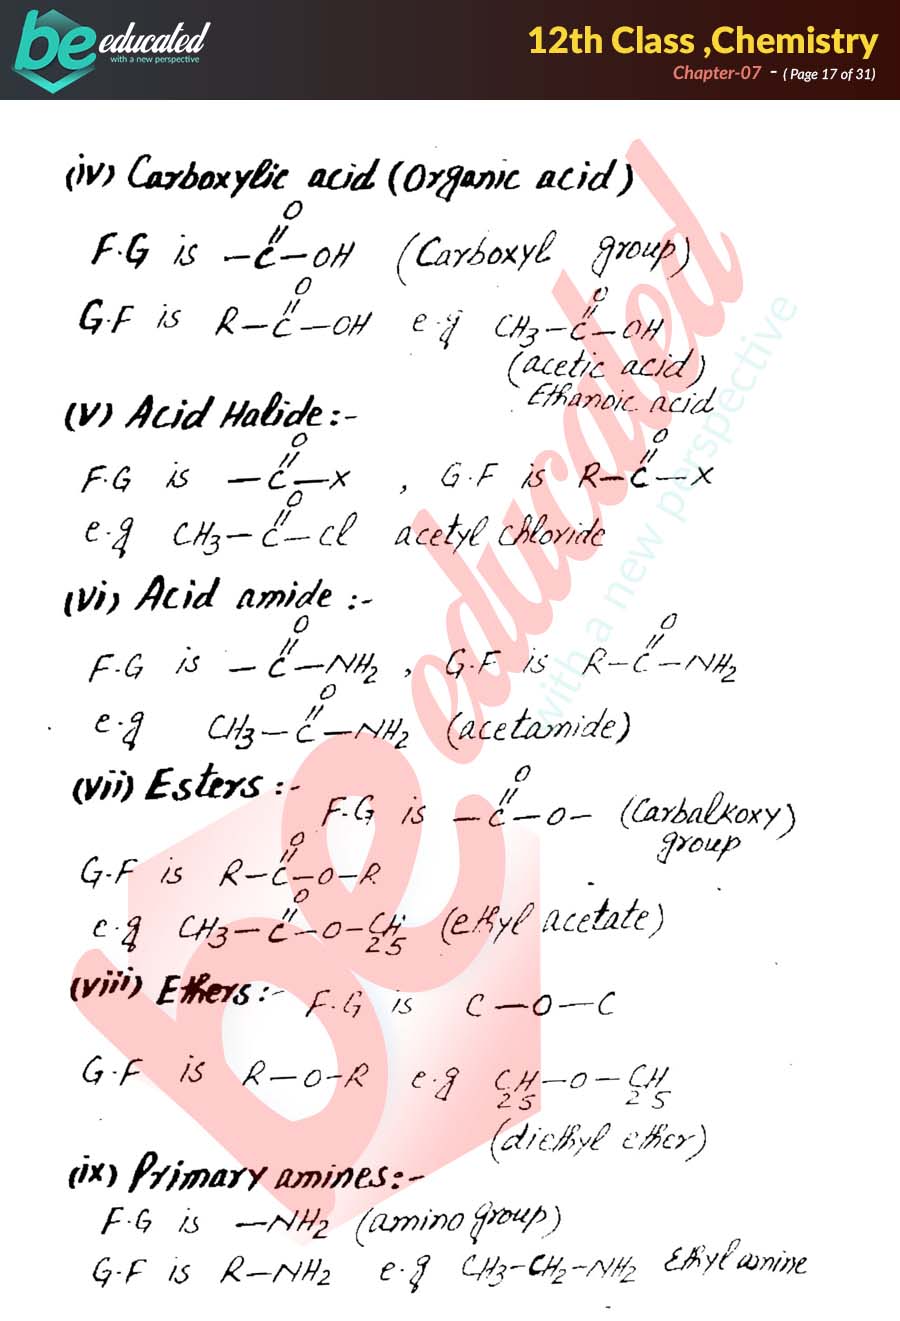 be educated
with a new perspective
12th Class ,Chemistry
Chapter-07 - ( Page 17 of 31)
(iv) Carboxylic acid (Organic acid)
O
F.G is -C-OH (Carboxyl group)
O O
G.F is R-C-OH e.g CH3-C-OH
(acetic acid)
Ethanoic acid
(v) Acid Halide:-
O O
F.G is -C-X , G.F is R-C-X
O
e.g CH3-C-Cl acetyl chloride
(vi) Acid amide :-
O O
F.G is -C-NH2 , G.F is R-C-NH2
O
e.g CH3-C-NH2 (acetamide)
(vii) Esters :-
O
F.G is -C-O- (Carbalkoxy)
group
O
G.F is R-C-O-R
O
e.g CH3-C-O-C2H5 (ethyl acetate)
(viii) Ethers:- F.G is C-O-C
G.F is R-O-R e.g C2H5-O-C2H5
(diethyl ether)
(ix) Primary amines:-
F.G is -NH2 (amino group)
G.F is R-NH2 e.g CH3-CH2-NH2 Ethyl amine
be educated
with a new perspective